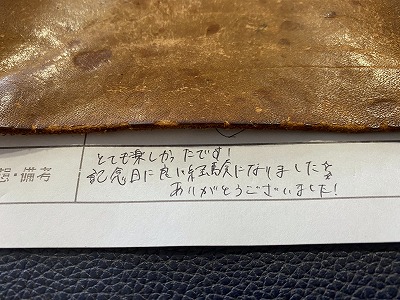 想・備考
とても楽しかったです!
記念日に良い経験になりました☆
ありがとうございました!